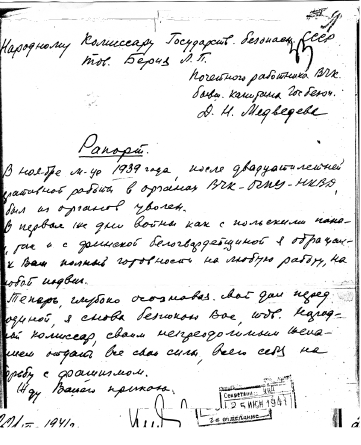 Народному Комиссару Государств. безопасн. СССР
тов. Берия Л. П.
Почетного работника ВЧК
бывш. капитана Гос.безоп.
Д. Н. Медведева
Рапорт.
В ноябре м-це 1939 года, после двадцатилетней
работы в органах ВЧК-ОГПУ-НКВД,
был из органов уволен.
В первые же дни войны как с польскими пана-
, так и с финской белогвардейщиной я обращал-
к Вам полный готовность на любую работу, на
любой подвиг.
Теперь, глубоко осознавая мой долг перед
родиной, я снова беспокою Вас, тов. Народ-
ный комиссар, своим непреодолимым жела-
нием отдать все свои силы, всего себя на
борьбу с фашизмом.
Жду Вашего приказа.
1941г.
Секретариат
25 ИЮН 1941
отделение